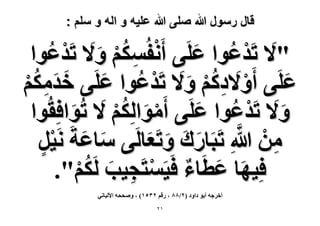 قال رسول الله صلى الله عليه و اله و سلم :
"لَا تَدْعُوا عَلَى أَنْفُسِكُمْ وَلَا تَدْعُوا
عَلَى أَوْلَادِكُمْ وَلَا تَدْعُوا عَلَى خَدَمِكُمْ
وَلَا تَدْعُوا عَلَى أَمْوَالِكُمْ لَا تُوَافِقُوا
مِنْ اللَّهِ تَبَارَكَ وَتَعَالَى سَاعَةَ نَيْلٍ
فِيهَا عَطَاءٌ فَيَسْتَجِيبَ لَكُمْ".
أخرجه أبو داود (٨٨/٢ ، رقم ١٥٣٢) ، وصححه الألباني
٢١